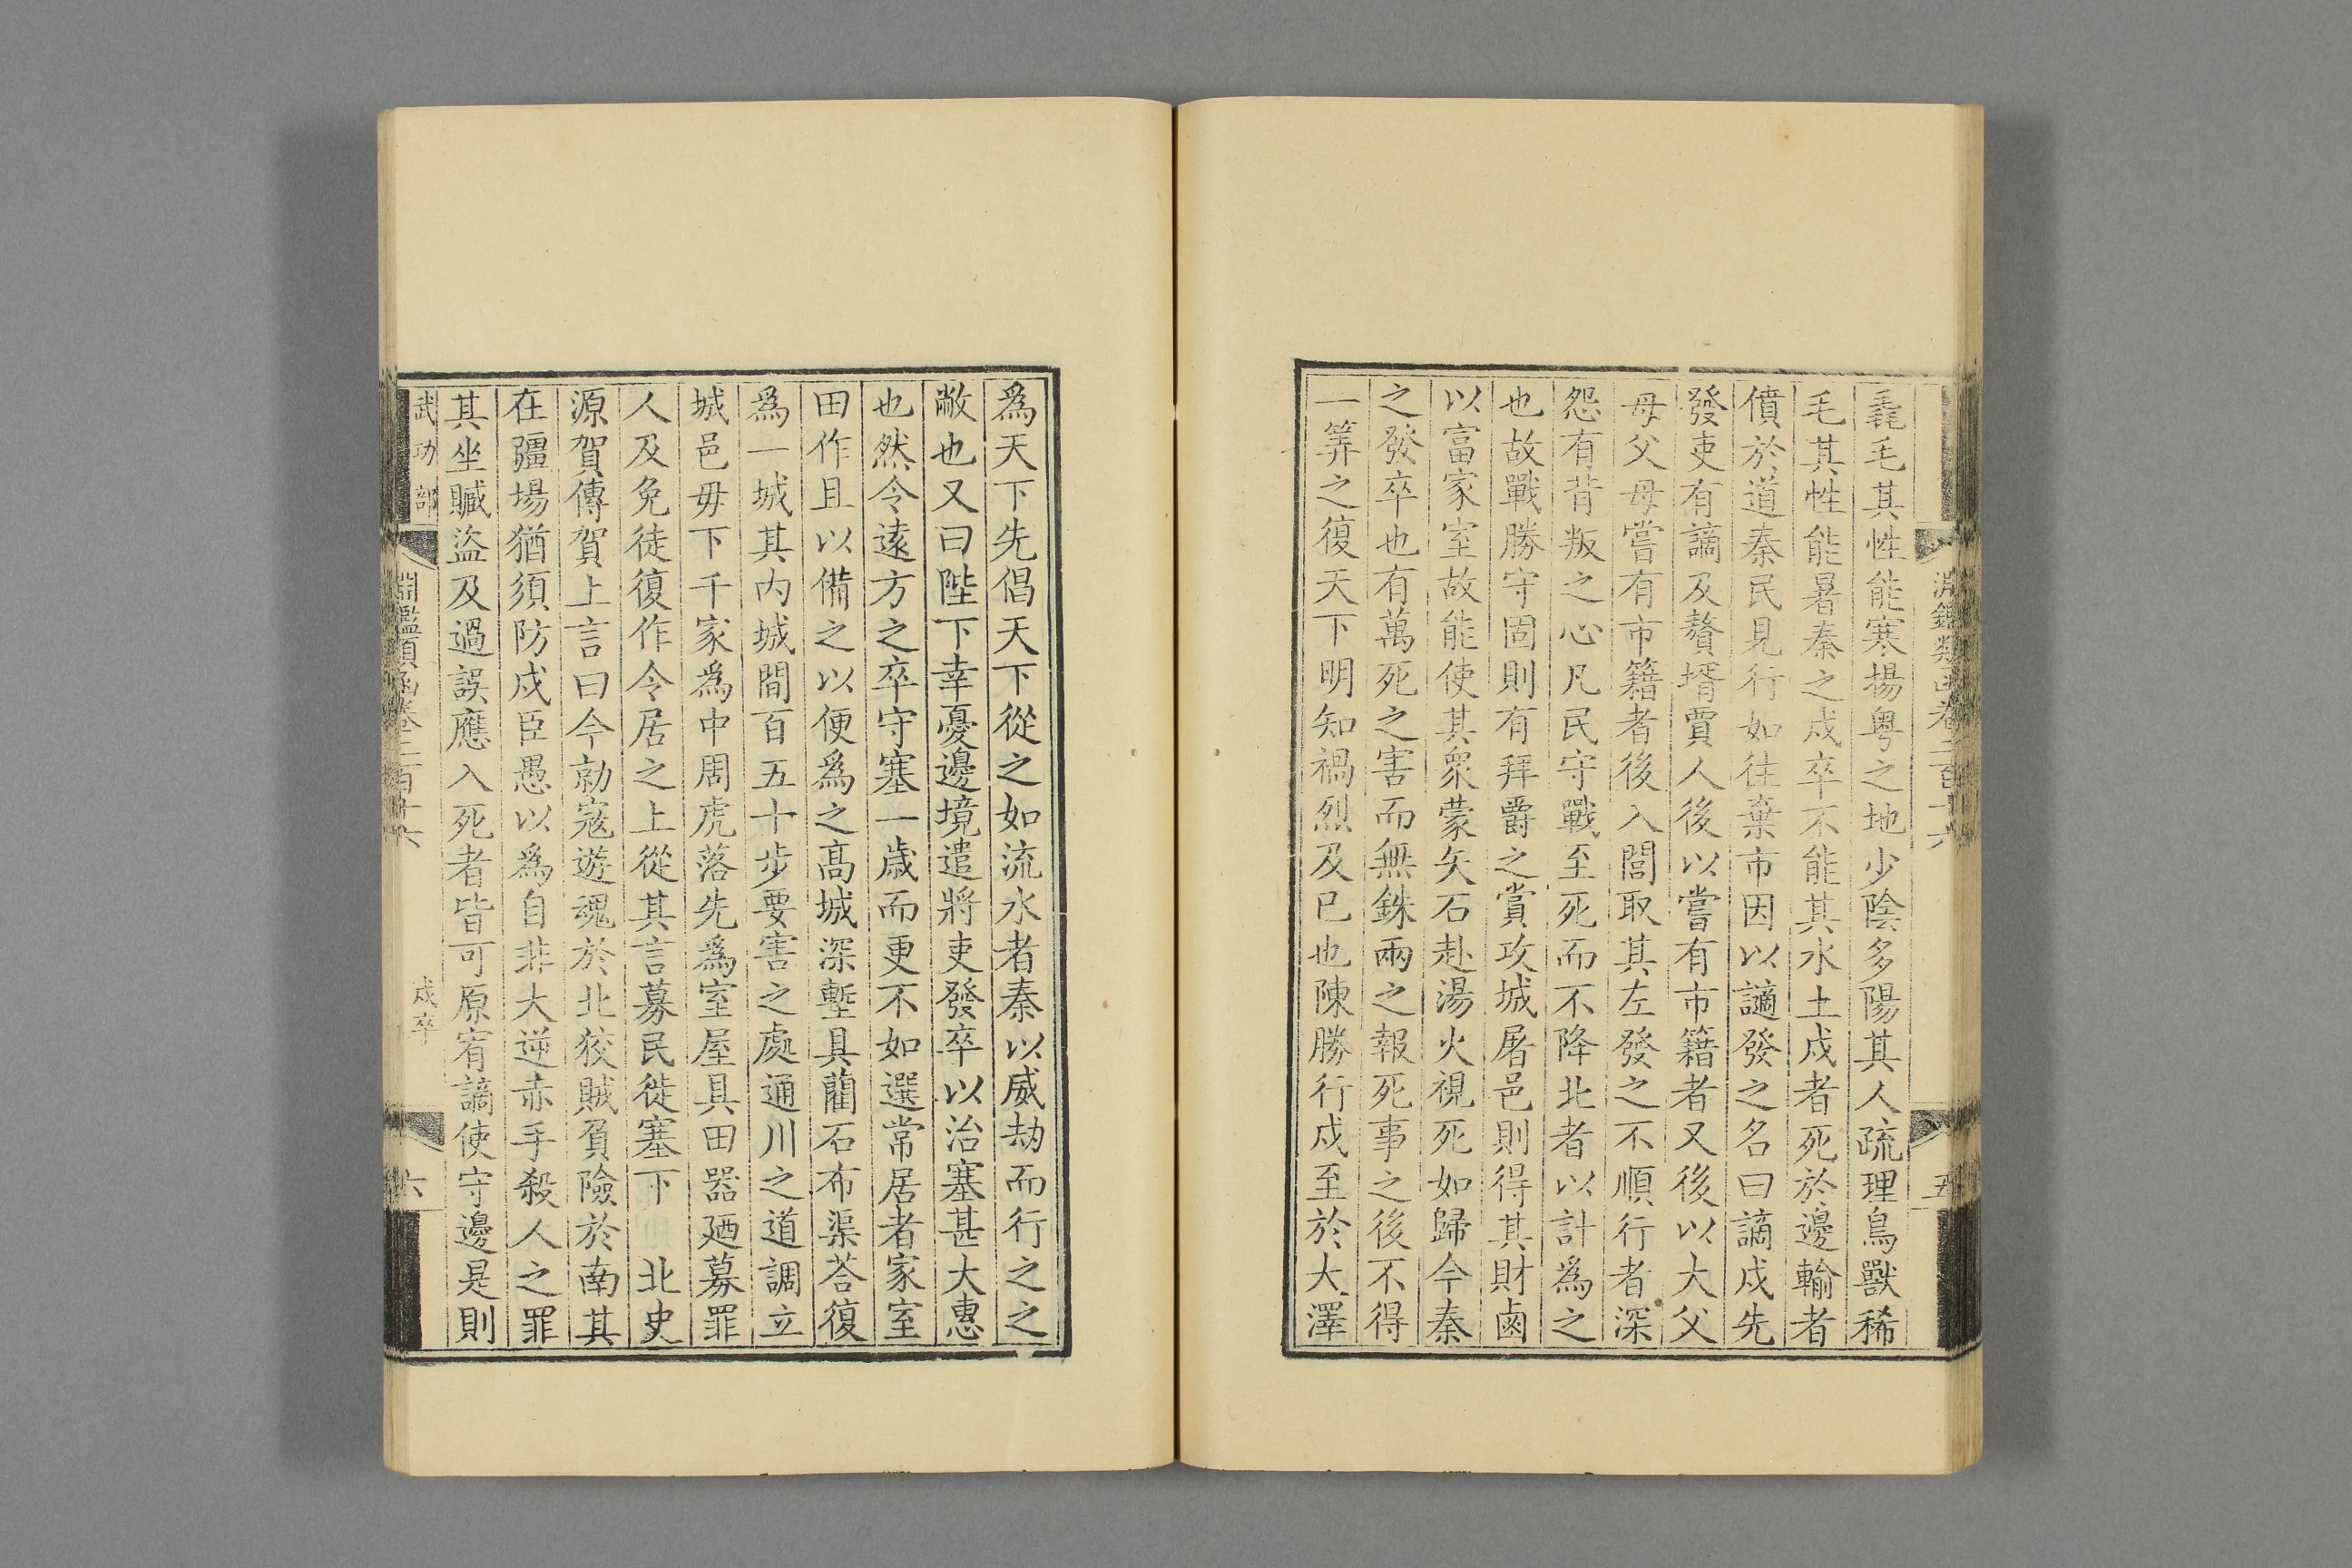 淵鑑類函卷二百十六
五
毳毛其性能寒揚粤之地少陰多陽其人疏理鳥獸稀
毛其性能暑秦之戍卒不能其水土戍者死於邊輸者
僨於道秦民見行如往棄市因以讁發之名曰謫戍先
發吏有謫及贅壻賈人後以嘗有市籍者又後以大父
母父母嘗有市籍者後入閭取其左發之不順行者深
怨有背叛之心凡民守戰至死而不降北者以計為之
也故戰勝守固則有拜爵之賞攻城屠邑則得其財鹵
以富家室故能使其衆蒙矢石赴湯火視死如歸今秦
之發卒也有萬死之害而無銖兩之報死事之後不得
一筭之復天下明知禍烈及已也陳勝行戍至於大澤
為天下先倡天下從之如流水者秦以威劫而行之之
敝也又曰陛下幸憂邊境遣將吏發卒以治塞甚大惠
也然令遠方之卒守塞一歲而更不如選常居者家室
田作且以備之以便爲之高城深塹具藺石布渠荅復
爲一城其內城間百五十步要害之處通川之道調立
城邑毋下千家爲中周虎落先爲室屋具田器廼募罪
人及免徒復作令居之上從其言募民徙塞下　北史
源賀傳賀上言曰今勍寇遊魂於北狡賊負險於南其
在疆場猶須防戍臣愚以爲自非大逆赤手殺人之罪
其坐贓盜及過誤應入死者皆可原宥謫使守邊是則
武功部
淵鑑類函卷二百十六
戍卒
六